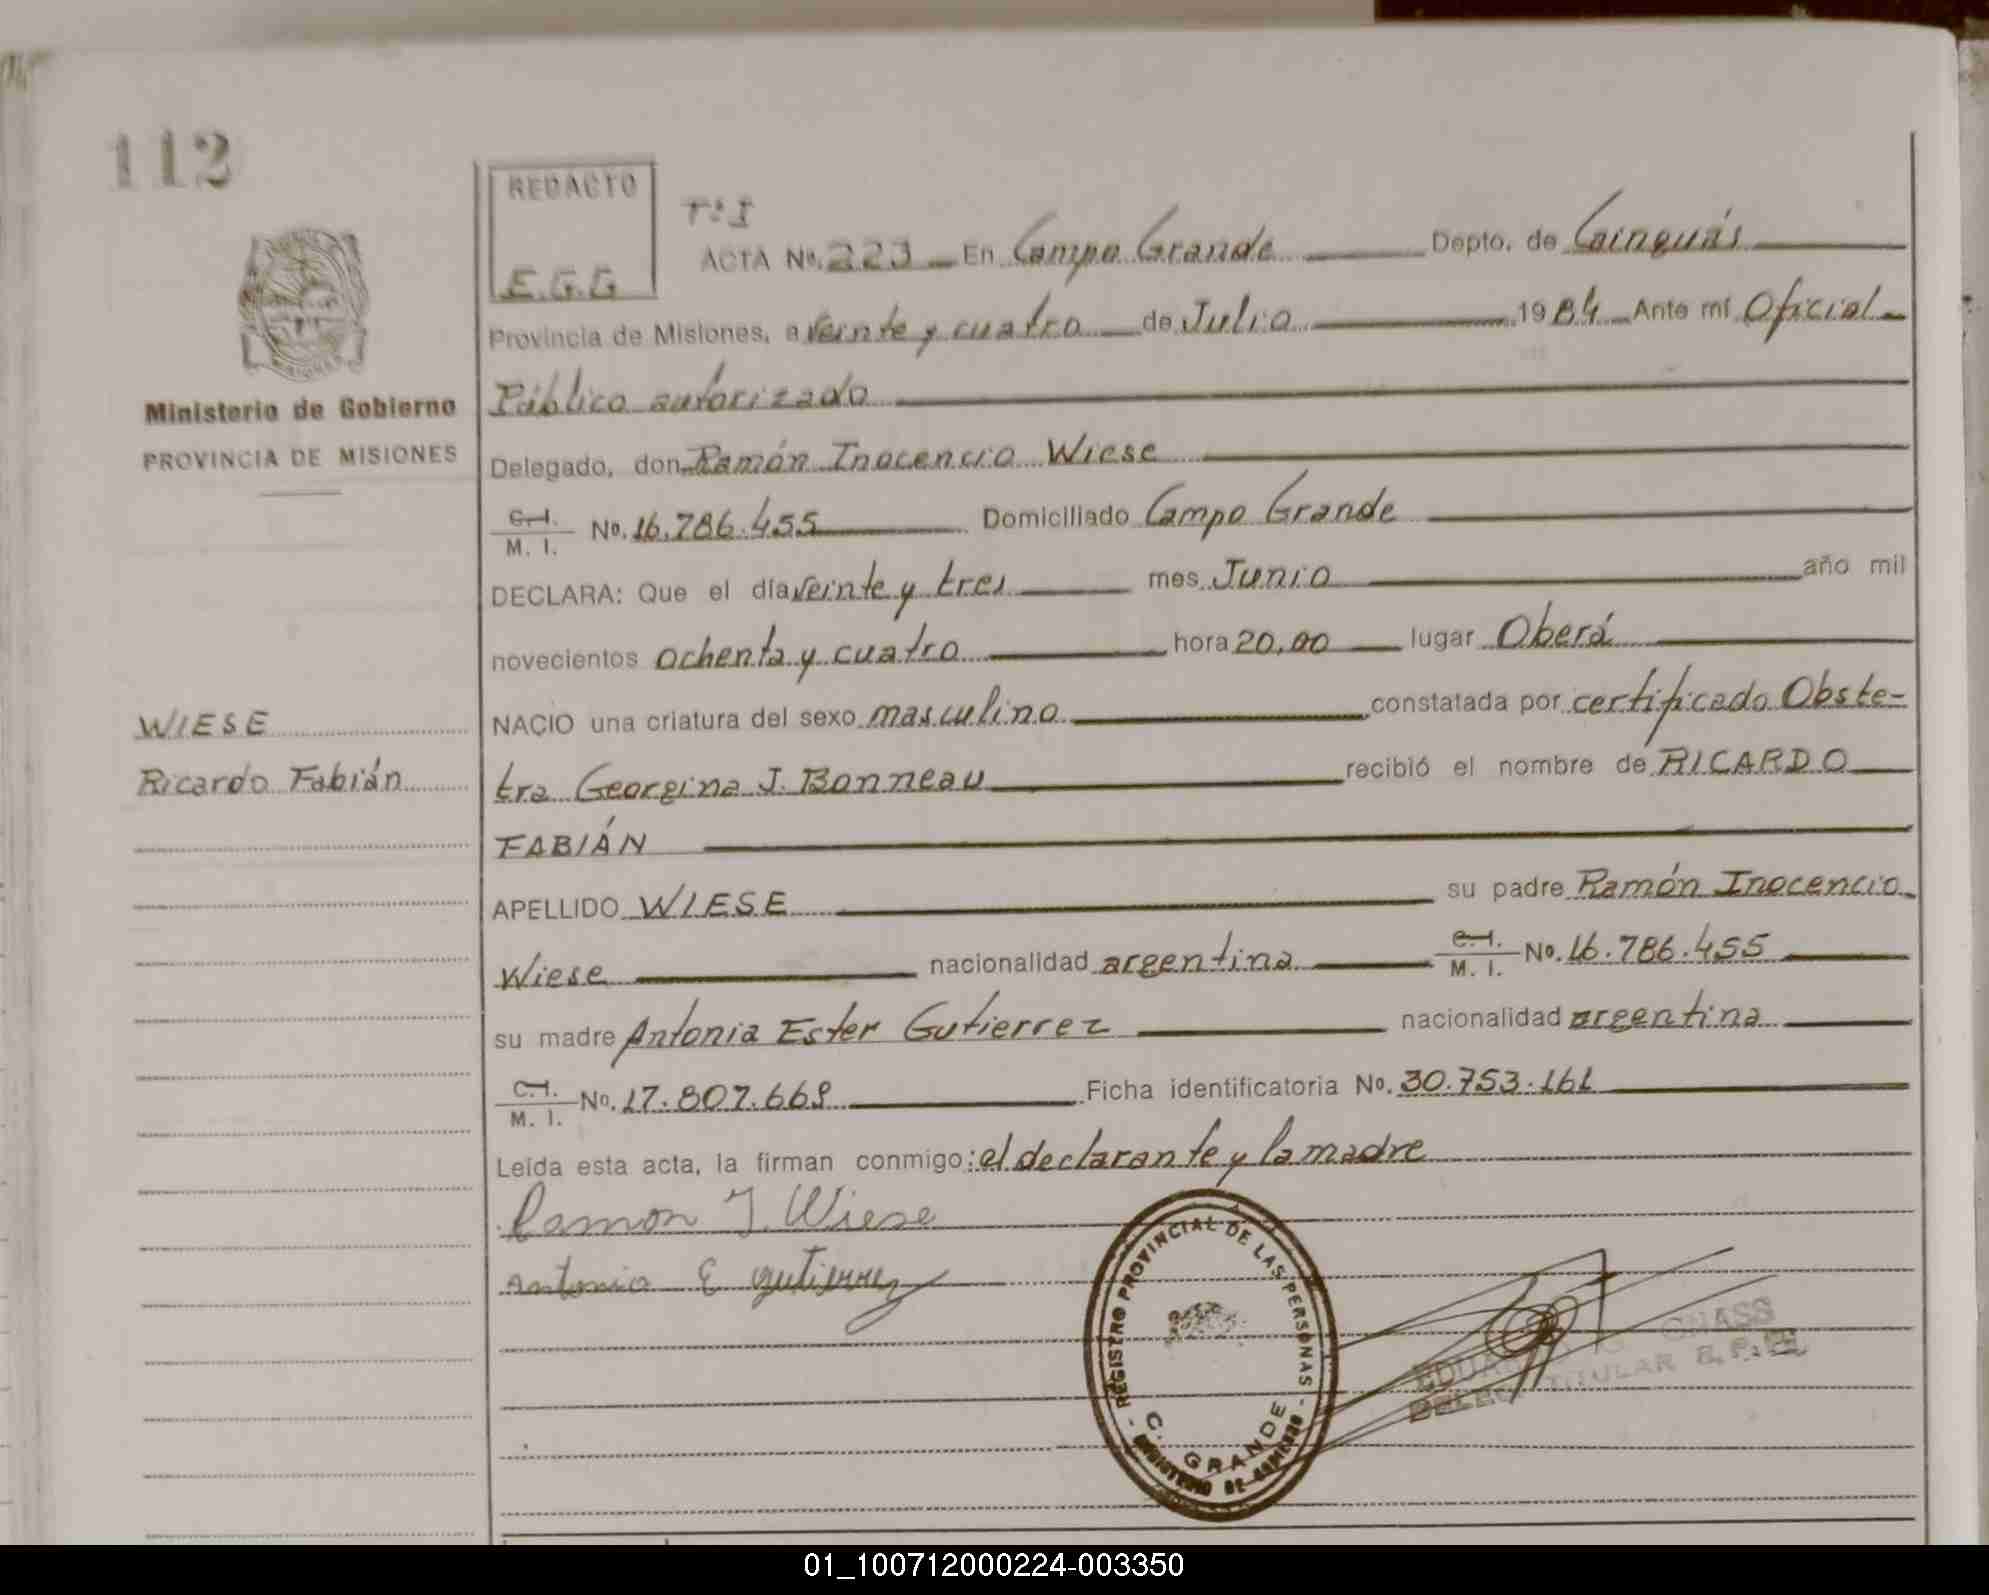 112
REDACTO
E.G.G
Tº I
ACTA Nº. 223 En Campo Grande Depto. de Cainguás
Provincia de Misiones, a veinte y cuatro de Julio 1984 Ante mí Oficial
Público autorizado
Ministerio de Gobierno
PROVINCIA DE MISIONES
Delegado, don Ramón Inocencio Wiese
C.I.
M. I. Nº. 16.786.455 Domiciliado Campo Grande
DECLARA: Que el día veinte y tres mes Junio año mil
novecientos ochenta y cuatro hora 20,00 lugar Oberá
WIESE
Ricardo Fabián
NACIO una criatura del sexo masculino constatada por certificado Obste-
tra Georgina J. Bonneau recibió el nombre de RICARDO
FABIÁN
APELLIDO WIESE su padre Ramón Inocencio
Wiese nacionalidad argentina C.I. M. I. Nº. 16.786.455
su madre Antonia Ester Gutierrez nacionalidad argentina
C.I.
M. I. Nº. 17.807.669 Ficha identificatoria Nº. 30.753.161
Leída esta acta, la firman conmigo: el declarante y la madre
Ramon I. Wiese
Antonia E Gutierrez
- REGISTRO PROVINCIAL DE LAS PERSONAS -
C. GRANDE
MINISTERIO DE GOBIERNO
TITULAR R.P.P.
01_100712000224-003350